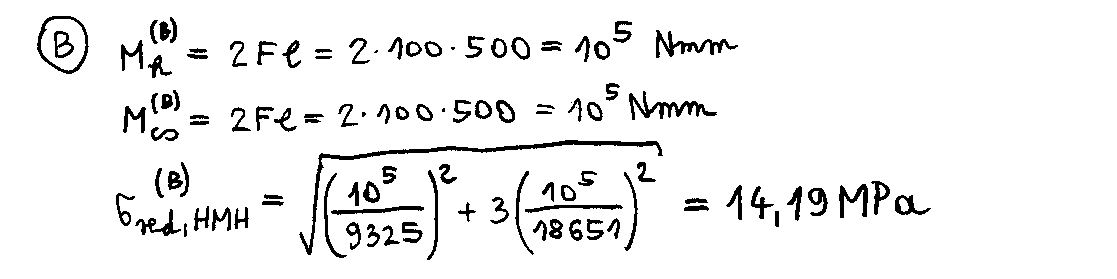 Ⓑ M_R^(B) = 2Fl = 2·100·500 = 10^5 Nmm
M_s^(B) = 2Fl = 2·100·500 = 10^5 Nmm
σ_red,HMH^(B) = √((10^5/9325)^2 + 3(10^5/18651)^2) = 14,19 MPa